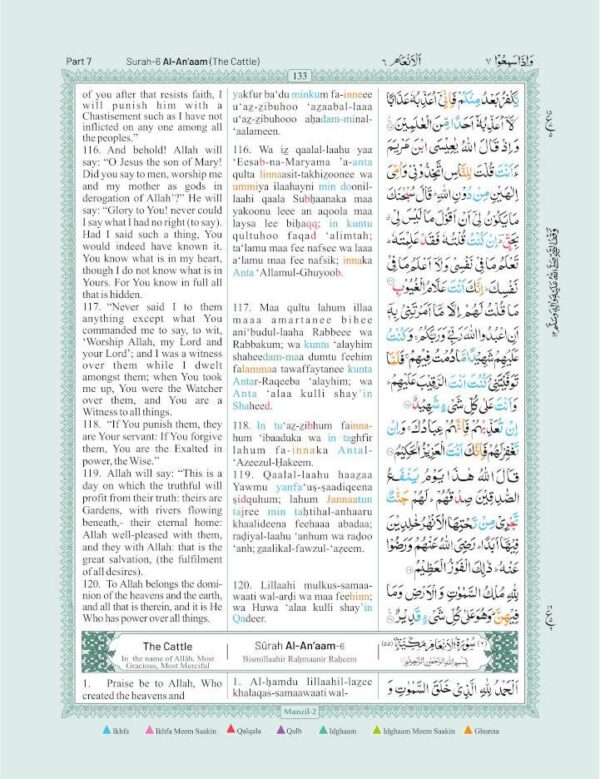 Part 7
Surah-6 Al-An'aam (The Cattle)
اَلْاَنْعَام ٦
وَاِذَا سَمِعُوْا ٧
133
of you after that resists faith, I
will punish him with a
Chastisement such as I have not
inflicted on any one among all
the peoples."
116. And behold! Allah will
say: "O Jesus the son of Mary!
Did you say to men, worship me
and my mother as gods in
derogation of Allah'?" He will
say: "Glory to You! never could
I say what I had no right (to say).
Had I said such a thing, You
would indeed have known it.
You know what is in my heart,
though I do not know what is in
Yours. For You know in full all
that is hidden.
117. "Never said I to them
anything except what You
commanded me to say, to wit,
'Worship Allah, my Lord and
your Lord'; and I was a witness
over them while I dwelt
amongst them; when You took
me up, You were the Watcher
over them, and You are a
Witness to all things.
118. "If You punish them, they
are Your servant: If You forgive
them, You are the Exalted in
power, the Wise."
119. Allah will say: "This is a
day on which the truthful will
profit from their truth: theirs are
Gardens, with rivers flowing
beneath,- their eternal home:
Allah well-pleased with them,
and they with Allah: that is the
great salvation, (the fulfilment
of all desires).
120. To Allah belongs the domi-
nion of the heavens and the earth,
and all that is therein, and it is He
Who has power over all things.
yakfur ba'du minkum fa-inneee
u'aẓ-ẓibuhoo 'aẓaabal-laaa
u'aẓ-ẓibuhooo aḥadam-minal-
'aalameen.
116. Wa iẓ qaalal-laahu yaa
'Eesab-na-Maryama 'a-anta
qulta linnaasit-takhiẓoonee wa
ummiya ilaahayni min doonil-
laahi qaala Subḥaanaka maa
yakoonu leee an aqoola maa
laysa lee biḥaqq; in kuntu
qultuhoo faqad 'alimtah;
ta'lamu maa fee nafsee wa laaa
a'lamu maa fee nafsik; innaka
Anta 'Allamul-Ghuyoob.
117. Maa qultu lahum illaa
maaa amartanee bihee
ani'budul-laaha Rabbeee wa
Rabbakum; wa kuntu 'alayhim
shaheedam-maa dumtu feehim
falammaa tawaffaytanee kunta
Antar-Raqeeba 'alayhim; wa
Anta 'alaa kulli shay'in
Shaheed.
118. In tu'aẓ-ẓibhum fainna-
hum 'ibaaduka wa in taghfir
lahum fa-innaka Antal-
'Azeezul-Ḥakeem.
119. Qaalal-laahu haaẓaa
Yawmu yanfa'uṣ-ṣaadiqeena
ṣidquhum; lahum Jannaatun
tajree min taḥtihal-anhaaru
khaalideena feehaaa abadaa;
raḍiyal-laahu 'anhum wa raḍoo
'anh; ẓaalikal-fawzul-'aẓeem.
120. Lillaahi mulkus-samaa-
waati wal-arḍi wa maa feehinn;
wa Huwa 'alaa kulli shay'in
Qadeer.
يَكْفُرْ بَعْدُ مِنْكُمْ فَاِنِّيْۤ اُعَذِّبُهٗ عَذَابًا
لَّاۤ اُعَذِّبُهٗۤ اَحَدًا مِّنَ الْعٰلَمِيْنَ
وَاِذْ قَالَ اللّٰهُ يٰعِيْسَى ابْنَ مَرْيَمَ
ءَاَنْتَ قُلْتَ لِلنَّاسِ اتَّخِذُوْنِيْ وَاُمِّيَ
اِلٰهَيْنِ مِنْ دُوْنِ اللّٰهِؕ قَالَ سُبْحٰنَكَ
مَا يَكُوْنُ لِيْۤ اَنْ اَقُوْلَ مَا لَيْسَ لِيْ
بِحَقٍّؕ اِنْ كُنْتُ قُلْتُهٗ فَقَدْ عَلِمْتَهٗؕ
تَعْلَمُ مَا فِيْ نَفْسِيْ وَلَاۤ اَعْلَمُ مَا فِيْ
نَفْسِكَؕ اِنَّكَ اَنْتَ عَلَّامُ الْغُيُوْبِ
مَا قُلْتُ لَهُمْ اِلَّا مَاۤ اَمَرْتَنِيْ بِهٖۤ
اَنِ اعْبُدُوا اللّٰهَ رَبِّيْ وَرَبَّكُمْۚ وَكُنْتُ
عَلَيْهِمْ شَهِيْدًا مَّا دُمْتُ فِيْهِمْۚ فَلَمَّا
تَوَفَّيْتَنِيْ كُنْتَ اَنْتَ الرَّقِيْبَ عَلَيْهِمْؕ
وَاَنْتَ عَلٰى كُلِّ شَيْءٍ شَهِيْدٌ
اِنْ تُعَذِّبْهُمْ فَاِنَّهُمْ عِبَادُكَۚ وَاِنْ
تَغْفِرْ لَهُمْ فَاِنَّكَ اَنْتَ الْعَزِيْزُ الْحَكِيْمُ
قَالَ اللّٰهُ هٰذَا يَوْمُ يَنْفَعُ
الصّٰدِقِيْنَ صِدْقُهُمْؕ لَهُمْ جَنّٰتٌ
تَجْرِيْ مِنْ تَحْتِهَا الْاَنْهٰرُ خٰلِدِيْنَ
فِيْهَاۤ اَبَدًاؕ رَضِيَ اللّٰهُ عَنْهُمْ وَرَضُوْا
عَنْهُؕ ذٰلِكَ الْفَوْزُ الْعَظِيْمُ
لِلّٰهِ مُلْكُ السَّمٰوٰتِ وَالْاَرْضِ وَمَا
فِيْهِنَّؕ وَهُوَ عَلٰى كُلِّ شَيْءٍ قَدِيْرٌ
The Cattle
In the name of Allâh, Most
Gracious, Most Merciful
Sûrah Al-An'aam-6
Bismillaahir Raḥmaanir Raheem
(٦) سُوْرَةُ الْاَنْعَامِ مَكِّيَّةٌ (٥٥)
بِسْمِ اللّٰهِ الرَّحْمٰنِ الرَّحِيْمِ
1. Praise be to Allah, Who
created the heavens and
1. Al-ḥamdu lillaahil-laẓee
khalaqas-samaawaati wal-
اَلْحَمْدُ لِلّٰهِ الَّذِيْ خَلَقَ السَّمٰوٰتِ وَ
Manzil-2
Ikhfa
Ikhfa Meem Saakin
Qalqala
Qalb
Idghaam
Idghaam Meem Saakin
Ghunna